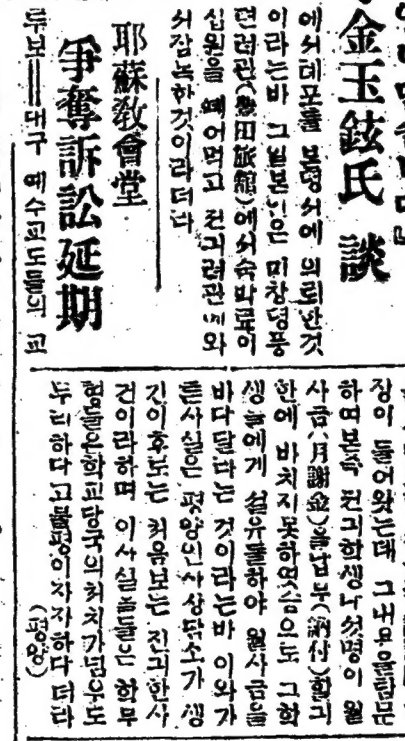 金玉鉉氏 談
에서톄포를 본뎡서에 의뢰한것
이라는바 그일본인은 미창뎡풍
뎐려관(豊田旅館)에서숙박료이
십원을 떼어먹고 전긔려관에와
서잠복한것이라더라
耶蘇敎會堂
爭奪訴訟延期
루보=대구 예수교도들의 교
장이 들어왓는대 그내용을탐문
하여본즉 전긔학생녀섯명이 월
사금(月謝金)을납부(納付)할긔
한에 바치지못하엿슴으로 그학
생들에게 설유를하야 월사금을
바다달라는 것이라는바 이와가
튼사실은 평양인사상담소가 생
긴이후로는 처음보는 진긔한사
건이라하며 이사실을들은 학부
형들은학교당국의처치가넘우도
무리하다고불평이자자하다더라
(평양)